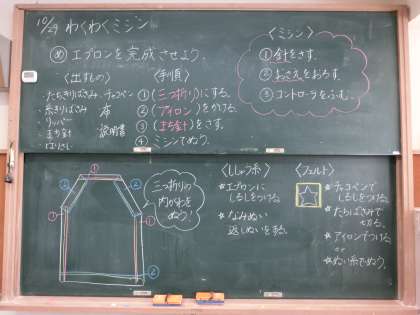 10/29 わくわくミシン
め エプロンを完成させよう。
〈出すもの〉
・たちきりばさみ ・チャコペン
・糸きりばさみ ・本
・リッパー
・まち針 ・説明書
・はりさし
〈手順〉
①(三つ折り)にする。
②(アイロン)をかける。
③(まち針)をさす。
④ミシンでぬう。
〈ミシン〉
①針をさす。
②おさえをおろす。
③コントローラをふむ。
①
② ②
① ①
②
三つ折りの
内がわを
ぬう!
〈ししゅう糸〉
★エプロンに
しるしをつける。
★なみぬい
返しぬいをする。
〈フェルト〉
★チャコペンで
しるしをつける。
★たちばさみで
切る。
★アイロンでつける。
or
★ぬい糸でぬう。